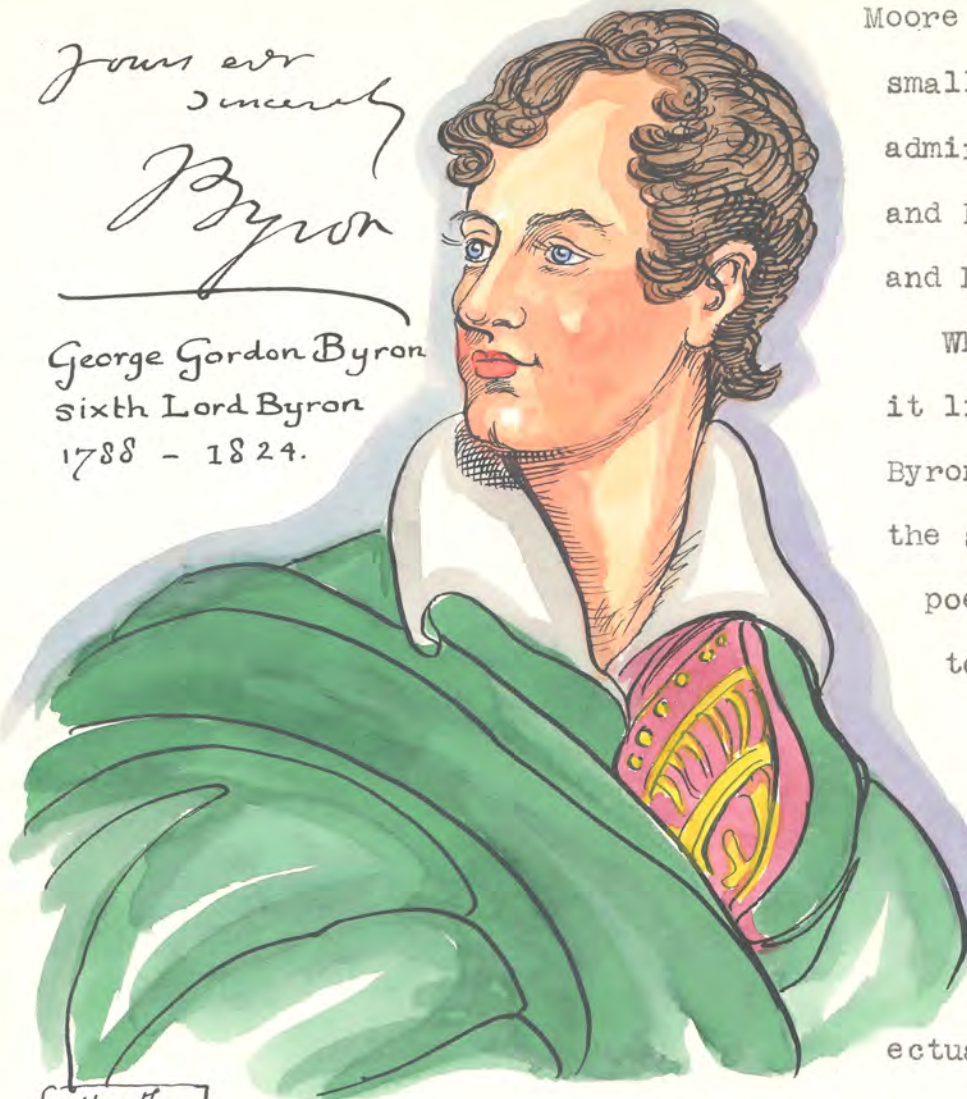 Yours ever
sincerely
Byron
George Gordon Byron
sixth Lord Byron
1788 - 1824.
Moore
small
and
and
it
Byron
the
ectua